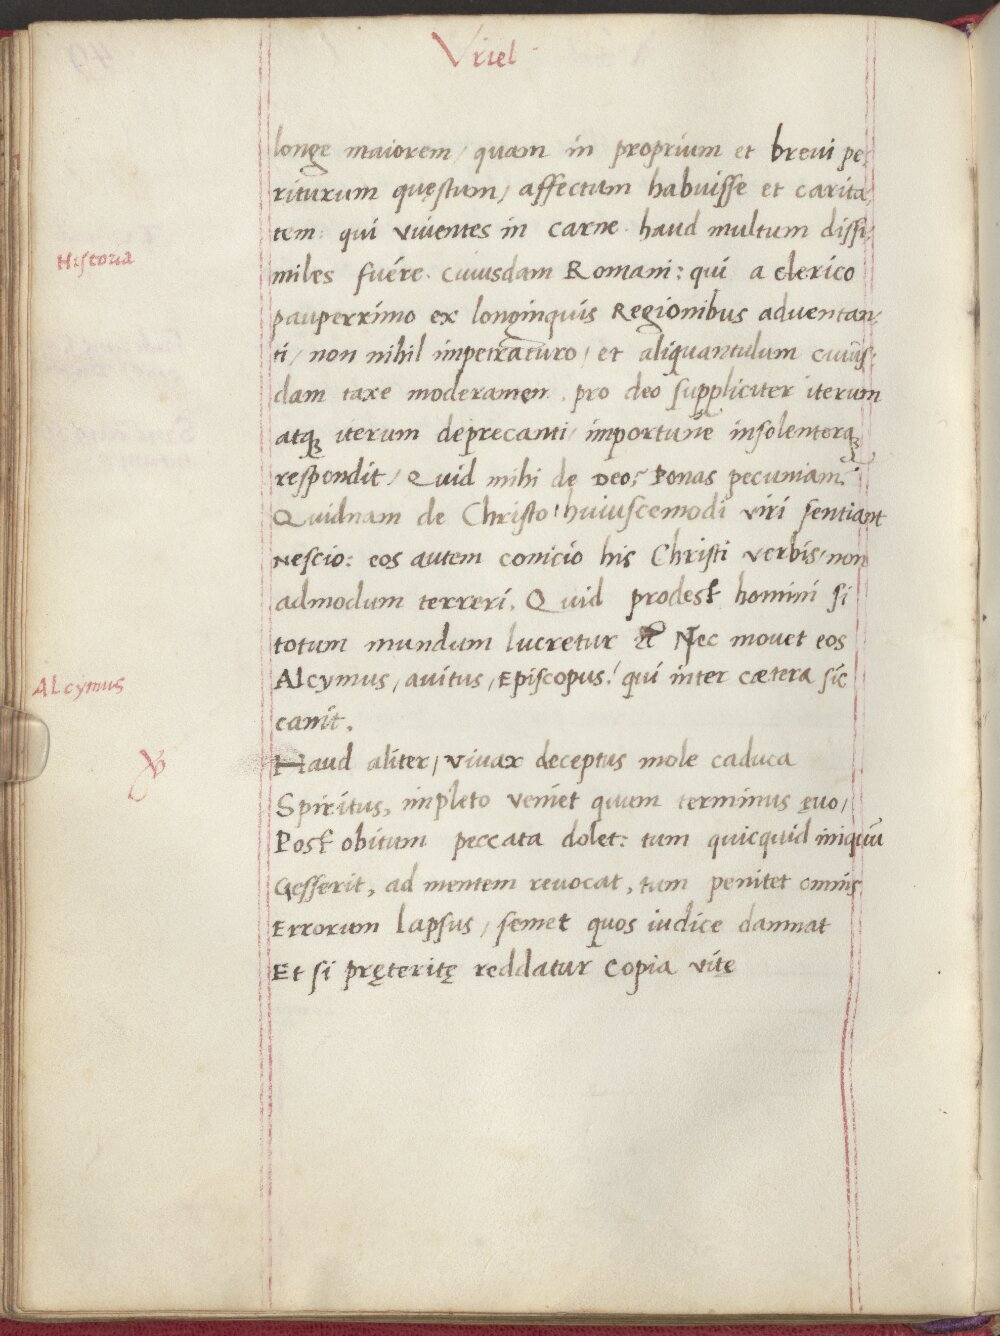 Vriel
longe maiorem, quam in proprium et breui pe,
riturum quęstum, affectum habuisse et carita,
tem: qui viventes in carne. haud multum dissi,
Historia
miles fuére. cuiusdam Romani: qui a clerico
pauperrimo ex longinquis Regionibus adventan,
ti, non nihil impetraturo, et aliquantulum cuius,
dam taxe moderamen. pro deo suppliciter iterum
atq iterum deprecanti, importune insolenterq
respondit, Quid mihi de Deo? Ponas pecuniam.
Quidnam de Christo huiuscemodi viri sentiant
Nescio: eos autem conicio his Christi verbis, non
admodum terreri. Quid prodest homini si
totum mundum lucretur &c Nec movet eos
Alcymus
Alcymus, avitus, Episcopus. qui inter cætera sic
canit.
Haud aliter, vivax deceptus mole caduca
Spiritus, impleto veniet quum terminus ęuo,
Post obitum peccata dolet: tum quicquid iniquū
Gesserit, ad mentem revocat, tum penitet omnis
Errorum lapsus, semet quos iudice damnat
Et si pręteritę reddatur copia vitę